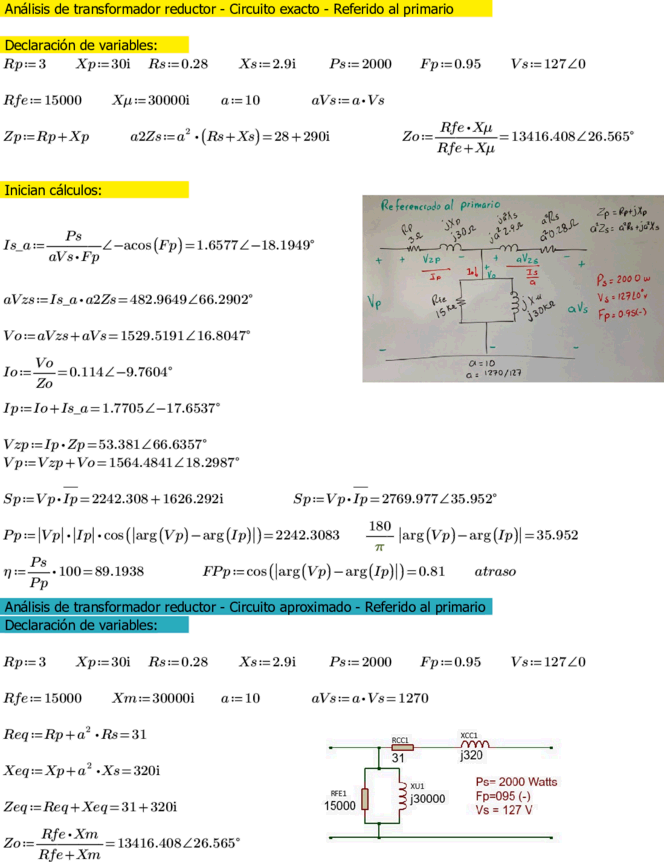 Análisis de transformador reductor - Circuito exacto - Referido al primario
Declaración de variables:
Rp:=3 Xp:=30i Rs:=0.28 Xs:=2.9i Ps:=2000 Fp:=0.95 Vs:=127∠0
Rfe:=15000 Xμ:=30000i a:=10 aVs:=a•Vs
Zp:=Rp+Xp a2Zs:=a²•(Rs+Xs)=28+290i Zo:=Rfe•Xμ/Rfe+Xμ=13416.408∠26.565°
Inician cálculos:
Is_a:=Ps/aVs•Fp∠−acos(Fp)=1.6577∠−18.1949°
aVzs:=Is_a•a2Zs=482.9649∠66.2902°
Vo:=aVzs+aVs=1529.5191∠16.8047°
Io:=Vo/Zo=0.114∠−9.7604°
Ip:=Io+Is_a=1.7705∠−17.6537°
Vzp:=Ip•Zp=53.381∠66.6357°
Vp:=Vzp+Vo=1564.4841∠18.2987°
Referenciado al primario
Rp
3Ω
jXp
j30Ω
j a²Xs
j a² 2.9Ω
a²Rs
a² 0.28Ω
Zp = Rp+jXp
a²Zs = a²Rs+ja²Xs
+ Vzp −
Ip
+ aVzs −
Is/a
Vo
Vp
Rfe
15KΩ
jXμ
j30KΩ
aVs
Ps = 2000 w
Vs = 127∠0° v
Fp = 0.95(-)
a = 10
a = 1270/127
Sp:=Vp•I̅p̅=2242.308+1626.292i Sp:=Vp•I̅p̅=2769.977∠35.952°
Pp:=|Vp|•|Ip|•cos(|arg(Vp)−arg(Ip)|)=2242.3083 180/π |arg(Vp)−arg(Ip)|=35.952
η:=Ps/Pp•100=89.1938 FPp:=cos(|arg(Vp)−arg(Ip)|)=0.81 atraso
Análisis de transformador reductor - Circuito aproximado - Referido al primario
Declaración de variables:
Rp:=3 Xp:=30i Rs:=0.28 Xs:=2.9i Ps:=2000 Fp:=0.95 Vs:=127∠0
Rfe:=15000 Xm:=30000i a:=10 aVs:=a•Vs=1270
Req:=Rp+a²•Rs=31
Xeq:=Xp+a²•Xs=320i
Zeq:=Req+Xeq=31+320i
Zo:=Rfe•Xm/Rfe+Xm=13416.408∠26.565°
RCC1
31
XCC1
j320
RFE1
15000
XU1
j30000
Ps= 2000 Watts
Fp=095 (-)
Vs = 127 V